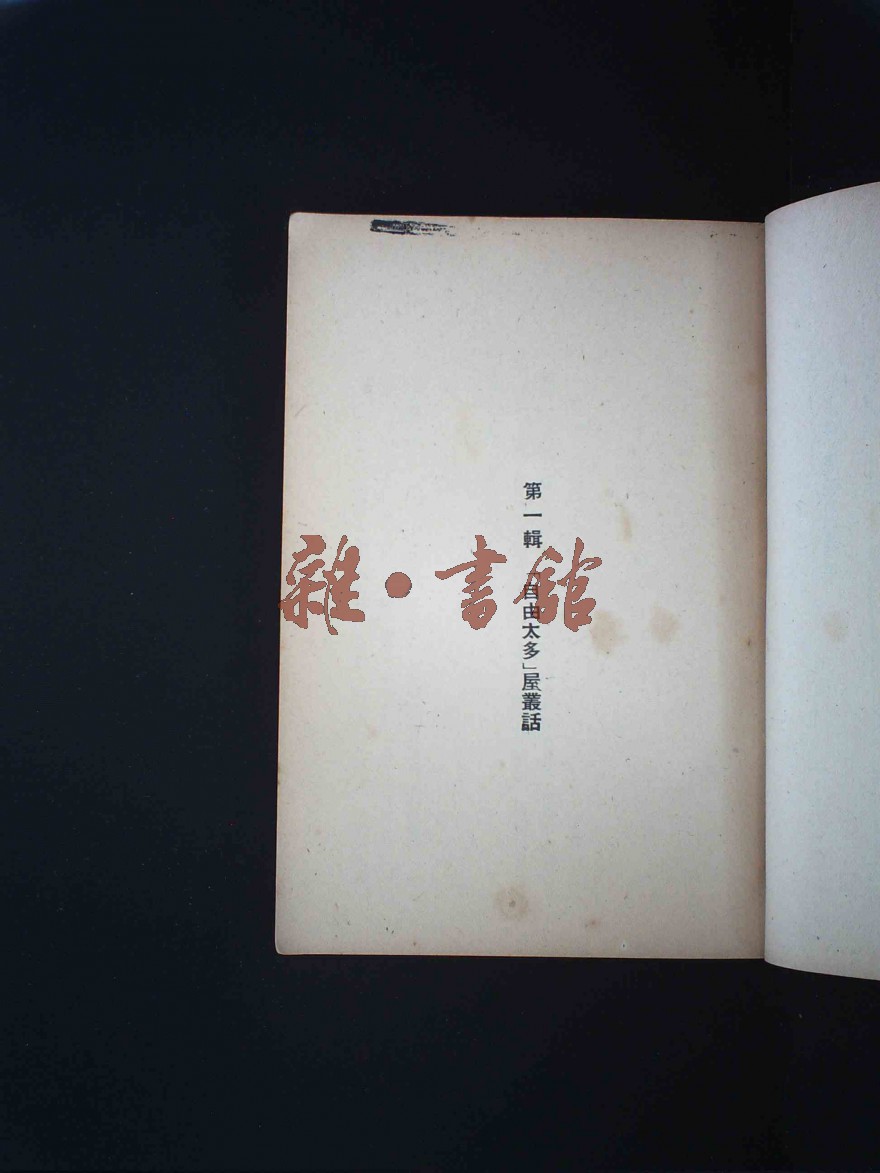 第一輯 「自由太多」屋叢話
雜·書館